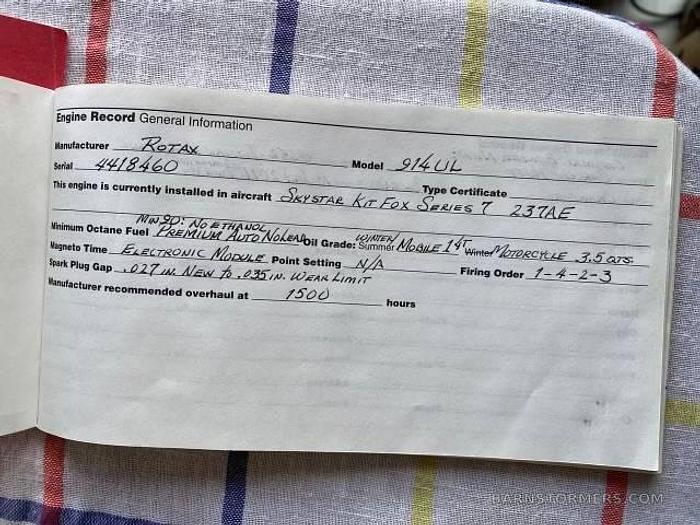 Engine Record General Information
Manufacturer ROTAX
Serial 4418460 Model 914UL
This engine is currently installed in aircraft SKYSTAR KIT FOX SERIES 7 Type Certificate 237AE
MIN 90: NO ETHANOL
Minimum Octane Fuel PREMIUM AUTO NO LEAD Oil Grade: WINTER Summer MOBILE 1 4T Winter MOTORCYCLE 3.5 QTS.
Magneto Time ELECTRONIC MODULE Point Setting N/A Firing Order 1-4-2-3
Spark Plug Gap .027 IN. NEW to .035 IN. WEAR LIMIT
Manufacturer recommended overhaul at 1500 hours
BARNSTORMERS.COM